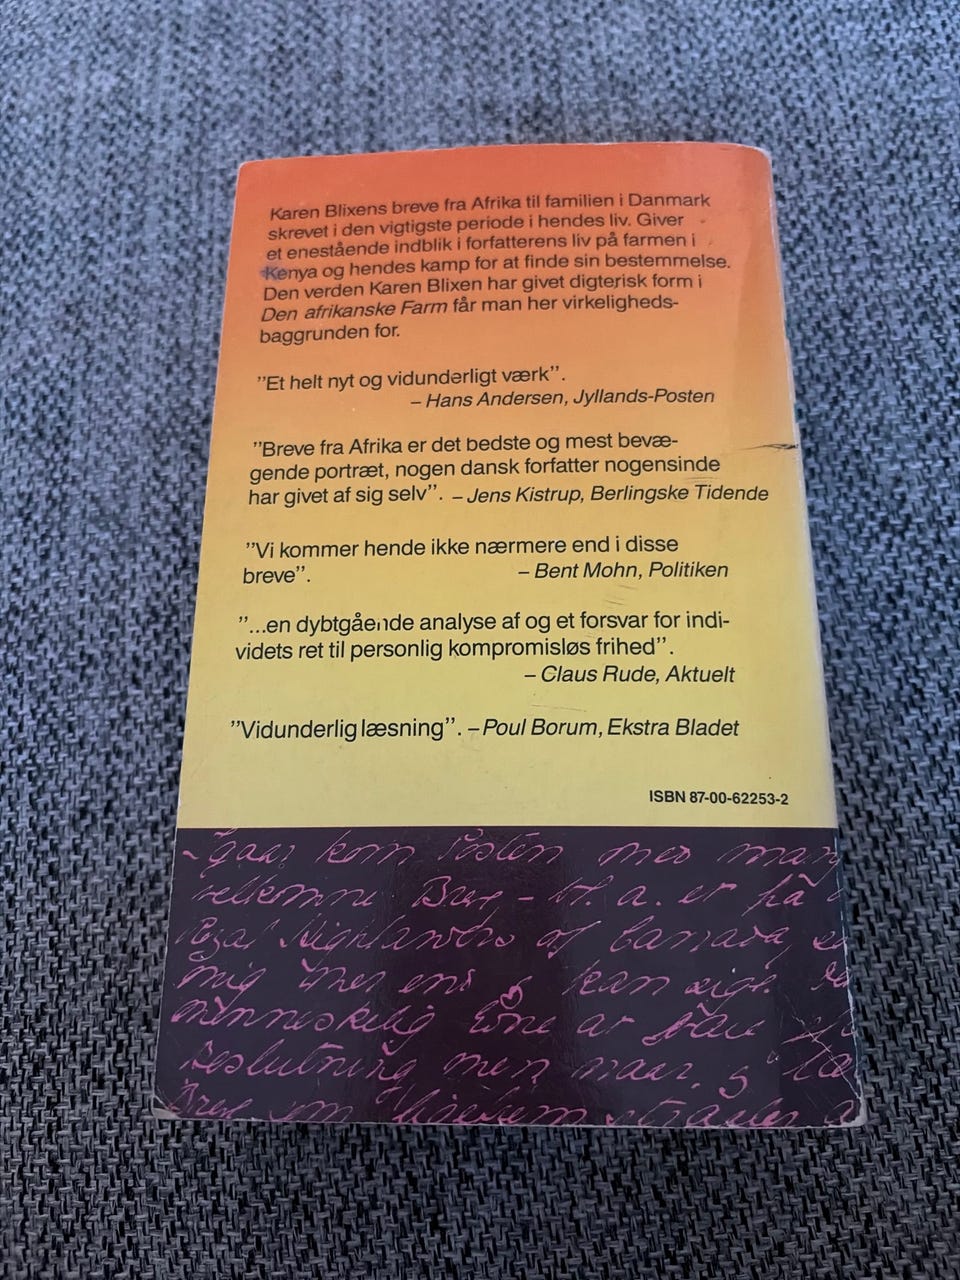 Karen Blixens breve fra Afrika til familien i Danmark
skrevet i den vigtigste periode i hendes liv. Giver
et enestående indblik i forfatterens liv på farmen i
Kenya og hendes kamp for at finde sin bestemmelse.
Den verden Karen Blixen har givet digterisk form i
Den afrikanske Farm får man her virkeligheds-
baggrunden for.
"Et helt nyt og vidunderligt værk".
– Hans Andersen, Jyllands-Posten
"Breve fra Afrika er det bedste og mest bevæ-
gende portræt, nogen dansk forfatter nogensinde
har givet af sig selv". – Jens Kistrup, Berlingske Tidende
"Vi kommer hende ikke nærmere end i disse
breve". – Bent Mohn, Politiken
"...en dybtgående analyse af og et forsvar for indi-
videts ret til personlig kompromisløs frihed".
– Claus Rude, Aktuelt
"Vidunderlig læsning". – Poul Borum, Ekstra Bladet
ISBN 87-00-62253-2
kom Posten med
Breve – bl. a. et
Royal Highlanders of Canada
mig kan
menneskelig Evne at
Beslutning men
Breve som